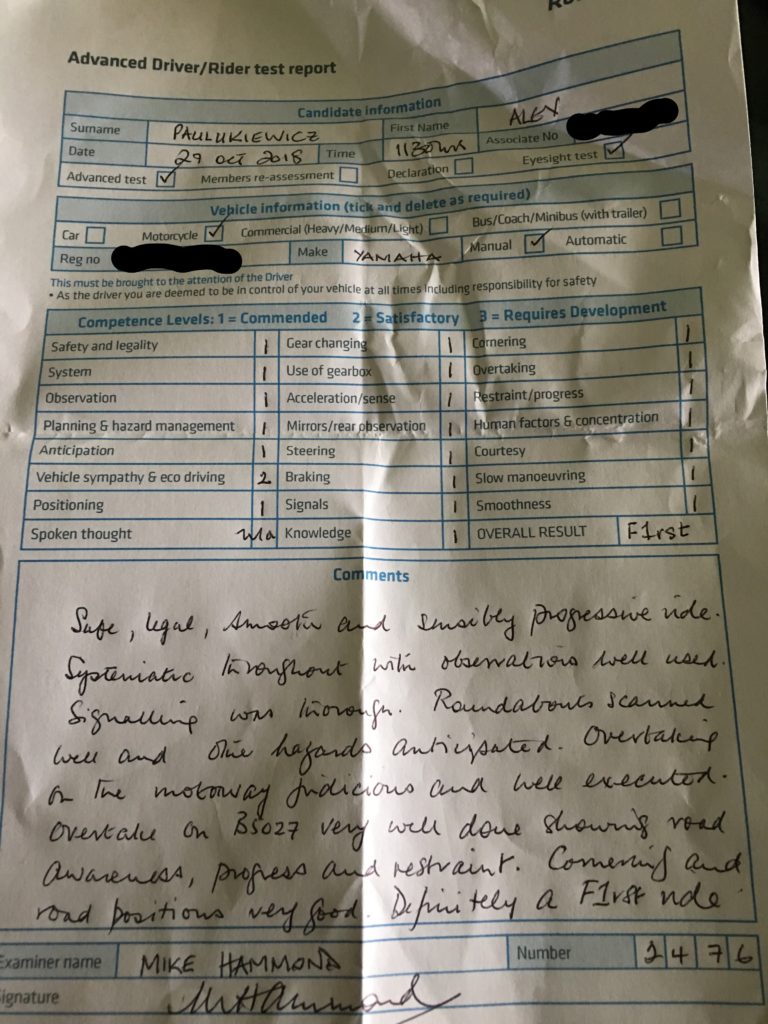 Advanced Driver/Rider test report
Candidate information
Surname PAULUKIEWICZ First Name ALEX
Date 29 OCT 2018 Time 1130hrs Associate No
Advanced test ✓ Members re-assessment Declaration Eyesight test ✓
Vehicle information (tick and delete as required)
Car Motorcycle ✓ Commercial (Heavy/Medium/Light) Bus/Coach/Minibus (with trailer)
Reg no Make YAMAHA Manual ✓ Automatic
This must be brought to the attention of the Driver
• As the driver you are deemed to be in control of your vehicle at all times including responsibility for safety
Competence Levels: 1 = Commended 2 = Satisfactory 3 = Requires Development
Safety and legality 1 Gear changing 1 Cornering 1
System 1 Use of gearbox 1 Overtaking 1
Observation 1 Acceleration/sense 1 Restraint/progress 1
Planning & hazard management 1 Mirrors/rear observation 1 Human factors & concentration 1
Anticipation 1 Steering 1 Courtesy 1
Vehicle sympathy & eco driving 2 Braking 1 Slow manoeuvring 1
Positioning 1 Signals 1 Smoothness 1
Spoken thought n/a Knowledge 1 OVERALL RESULT F1rst
Comments
Safe, legal, smooth and sensibly progressive ride.
Systematic throughout with observations well used.
Signalling was thorough. Roundabouts scanned
well and other hazards anticipated. Overtaking
on the motorway judicious and well executed.
Overtake on B5027 very well done showing road
awareness, progress and restraint. Cornering and
road positions very good. Definitely a F1rst ride
Examiner name MIKE HAMMOND Number 2476
Signature MHammond